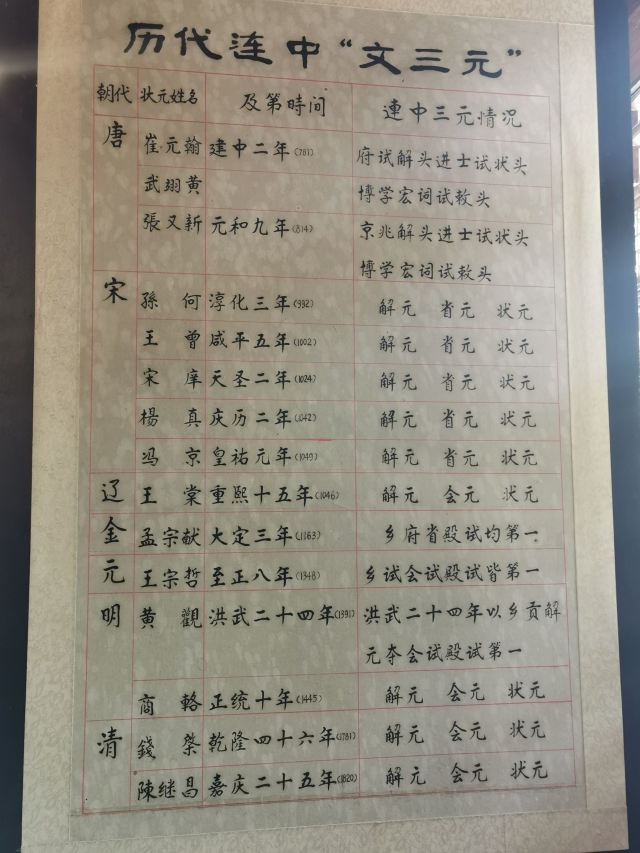 历代连中“文三元”
朝代 状元姓名 及第時间 連中三元情况
唐 崔元翰 建中二年(781) 府试解头进士试状头
武翊黄 博学宏词试敕头
張又新 元和九年(814) 京兆解头进士试状头
博学宏词试敕头
宋 孫何 淳化三年(992) 解元 省元 状元
王曾 咸平五年(1002) 解元 省元 状元
宋庠 天圣二年(1024) 解元 省元 状元
楊真 庆历二年(1042) 解元 省元 状元
冯京 皇祐元年(1049) 解元 省元 状元
辽 王棠 重熙十五年(1046) 解元 会元 状元
金 孟宗献 大定三年(1163) 乡府省殿试均第一
元 王宗哲 至正八年(1348) 乡试会试殿试皆第一
明 黄觀 洪武二十四年(1391) 洪武二十四年以乡贡解
元夺会试殿试第一
商輅 正统十年(1445) 解元 会元 状元
清 錢棨 乾隆四十六年(1781) 解元 会元 状元
陳继昌 嘉庆二十五年(1820) 解元 会元 状元